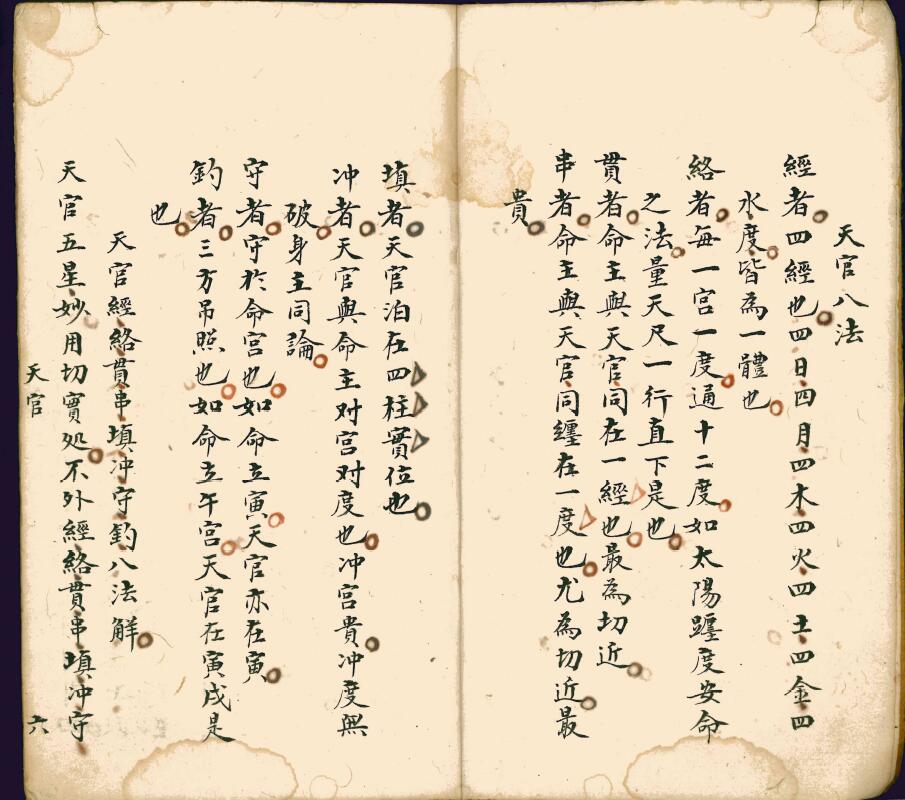 天官八法
經者四經也四日四月四木四火四土四金四
水度皆為一體也
絡者每一宮一度通十二度如太陽躔度安命
之法量天尺一行直下是也
貫者命主與天官同在一經也最為切近
串者命主與天官同纏在一度也尤為切近最
貴
填者天官泊在四柱實位也
冲者天官與命主对宮对度也冲宮貴冲度無
破身主同論
守者守於命宮也如命立寅天官亦在寅
釣者三方吊照也如命立午宮天官在寅戌是
也
天官經絡貫串填冲守釣八法解
天官五星妙用切實処不外經絡貫串填冲守
天官 六